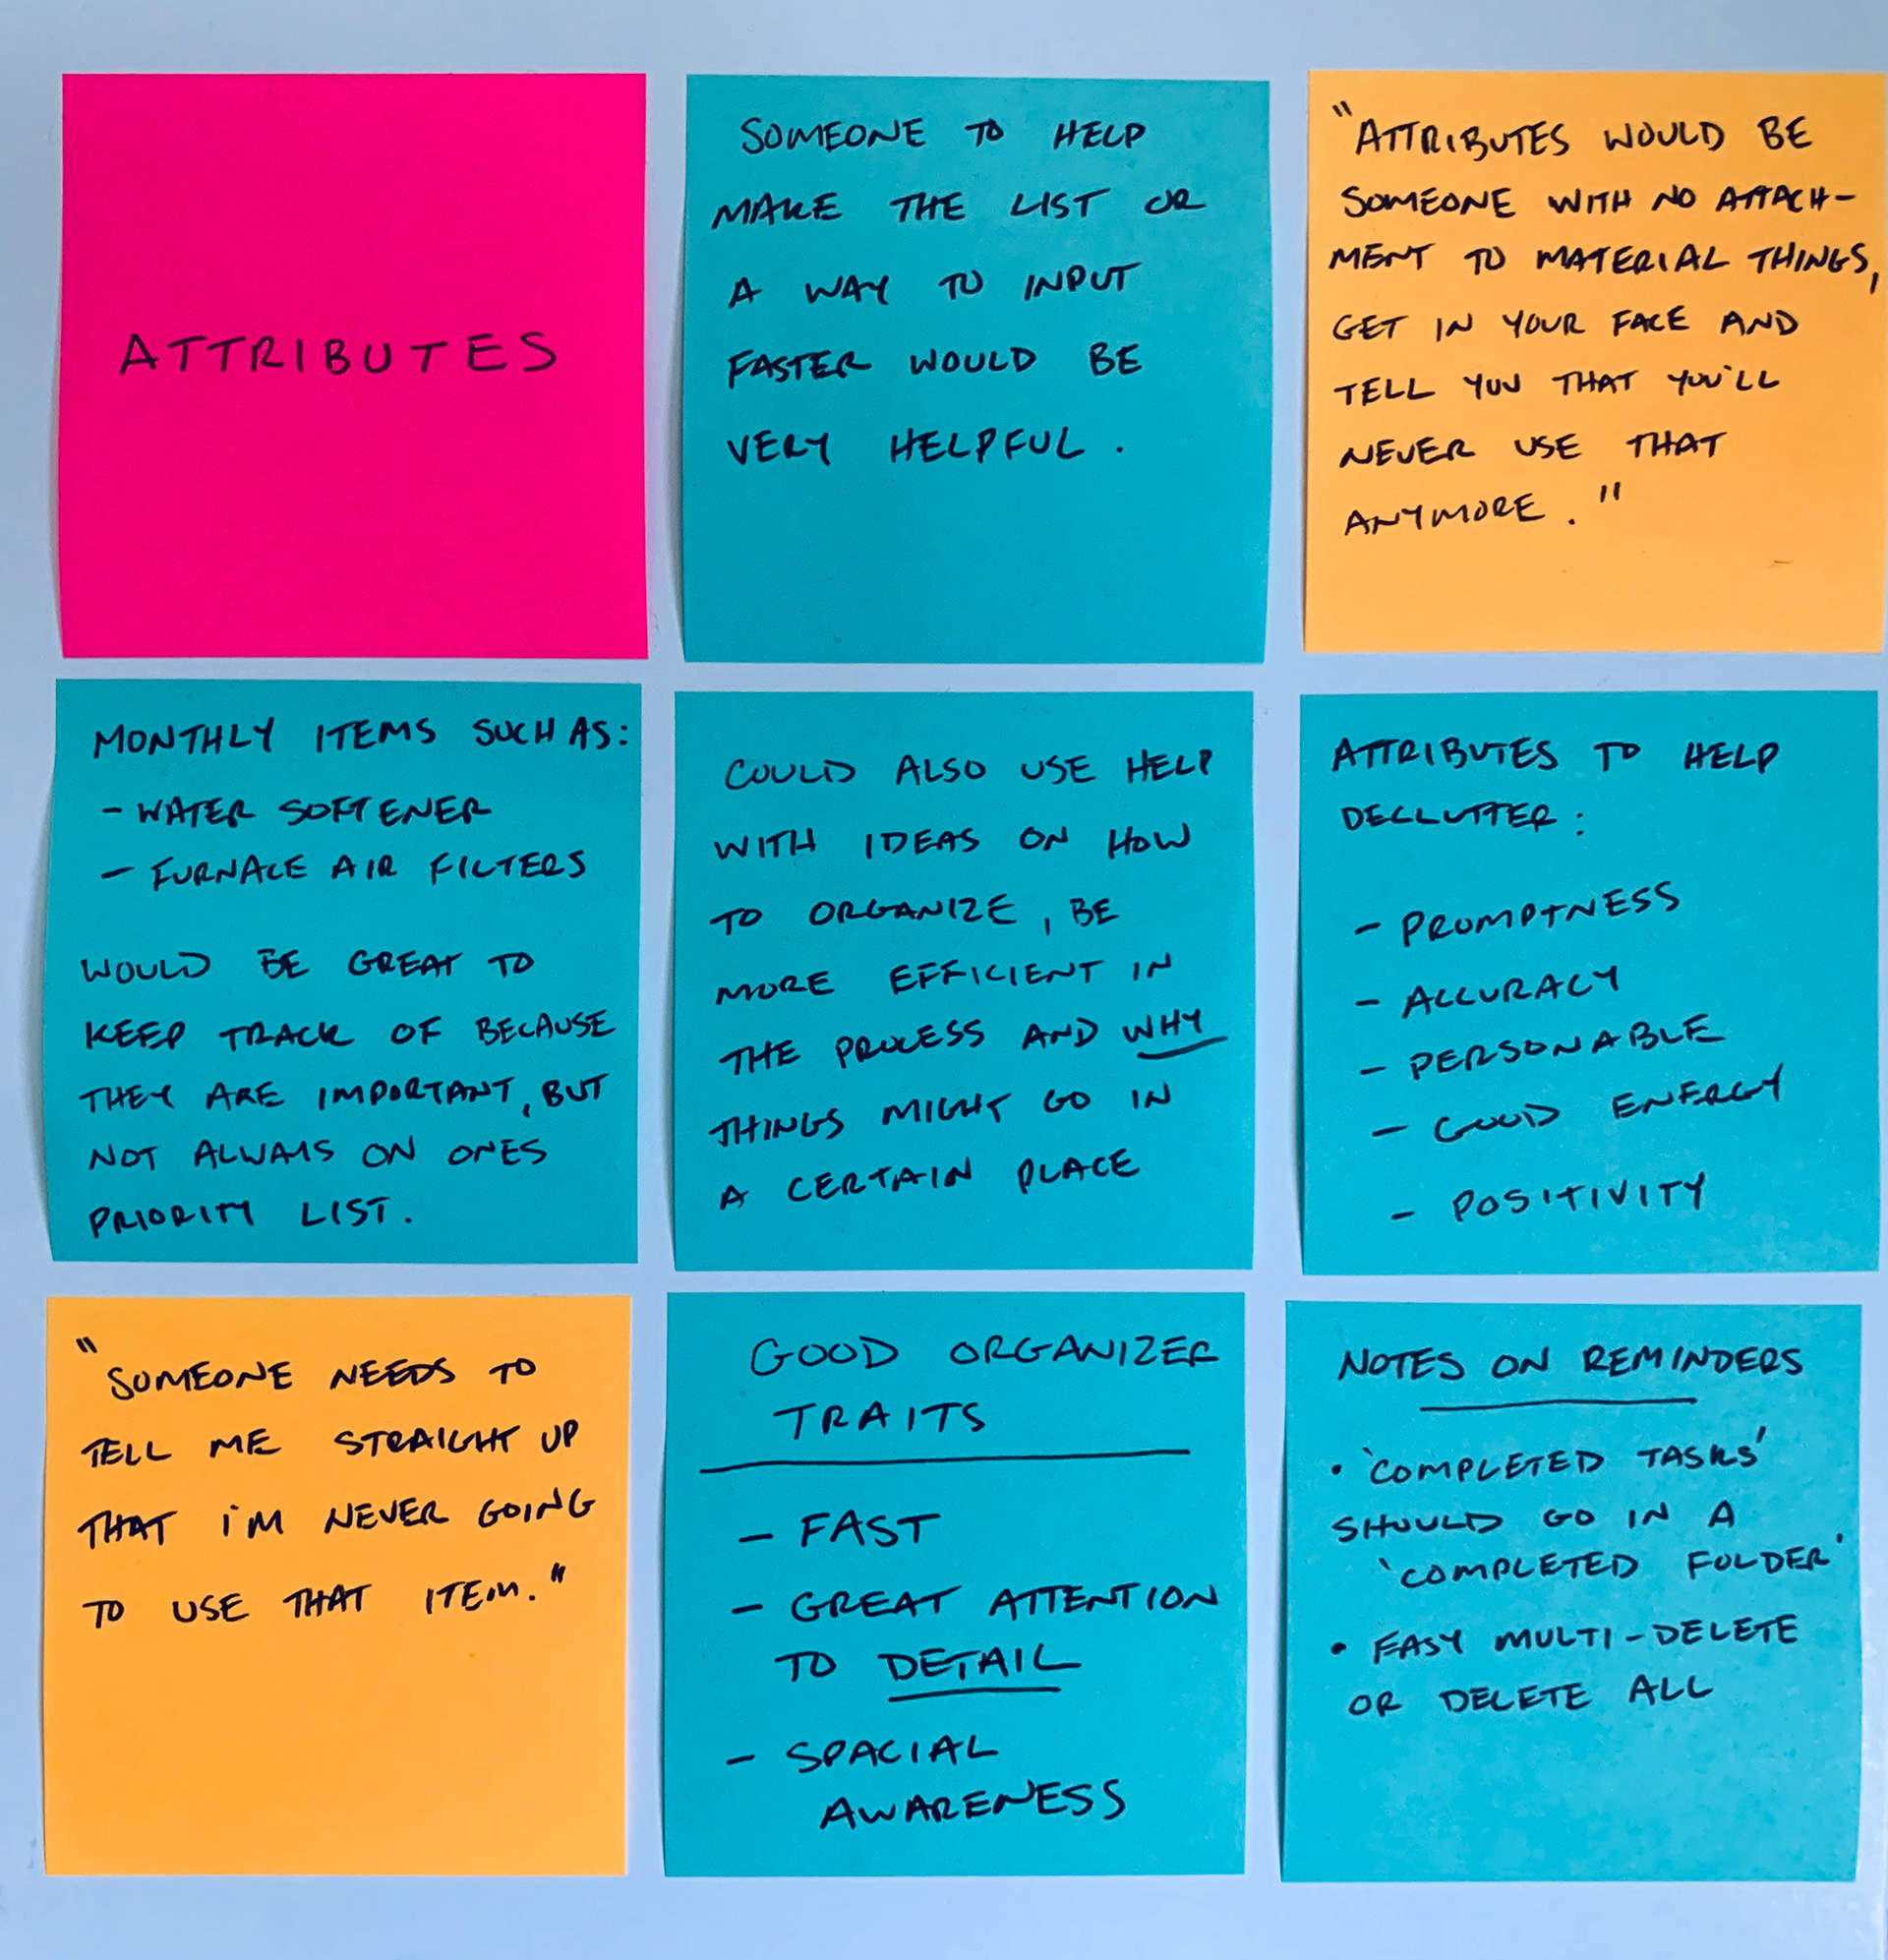 ATTRIBUTES
SOMEONE TO HELP
MAKE THE LIST OR
A WAY TO INPUT
FASTER WOULD BE
VERY HELPFUL.
"ATTRIBUTES WOULD BE
SOMEONE WITH NO ATTACH-
MENT TO MATERIAL THINGS,
GET IN YOUR FACE AND
TELL YOU THAT YOU'LL
NEVER USE THAT
ANYMORE."
MONTHLY ITEMS SUCH AS:
- WATER SOFTENER
- FURNACE AIR FILTERS
WOULD BE GREAT TO
KEEP TRACK OF BECAUSE
THEY ARE IMPORTANT, BUT
NOT ALWAYS ON ONES
PRIORITY LIST.
COULD ALSO USE HELP
WITH IDEAS ON HOW
TO ORGANIZE, BE
MORE EFFICIENT IN
THE PROCESS AND WHY
THINGS MIGHT GO IN
A CERTAIN PLACE
ATTRIBUTES TO HELP
DECLUTTER:
- PROMPTNESS
- ACCURACY
- PERSONABLE
- GOOD ENERGY
- POSITIVITY
"SOMEONE NEEDS TO
TELL ME STRAIGHT UP
THAT I'M NEVER GOING
TO USE THAT ITEM."
GOOD ORGANIZER
TRAITS
- FAST
- GREAT ATTENTION
TO DETAIL
- SPACIAL
AWARENESS
NOTES ON REMINDERS
• 'COMPLETED TASKS'
SHOULD GO IN A
'COMPLETED FOLDER'
• EASY MULTI-DELETE
OR DELETE ALL